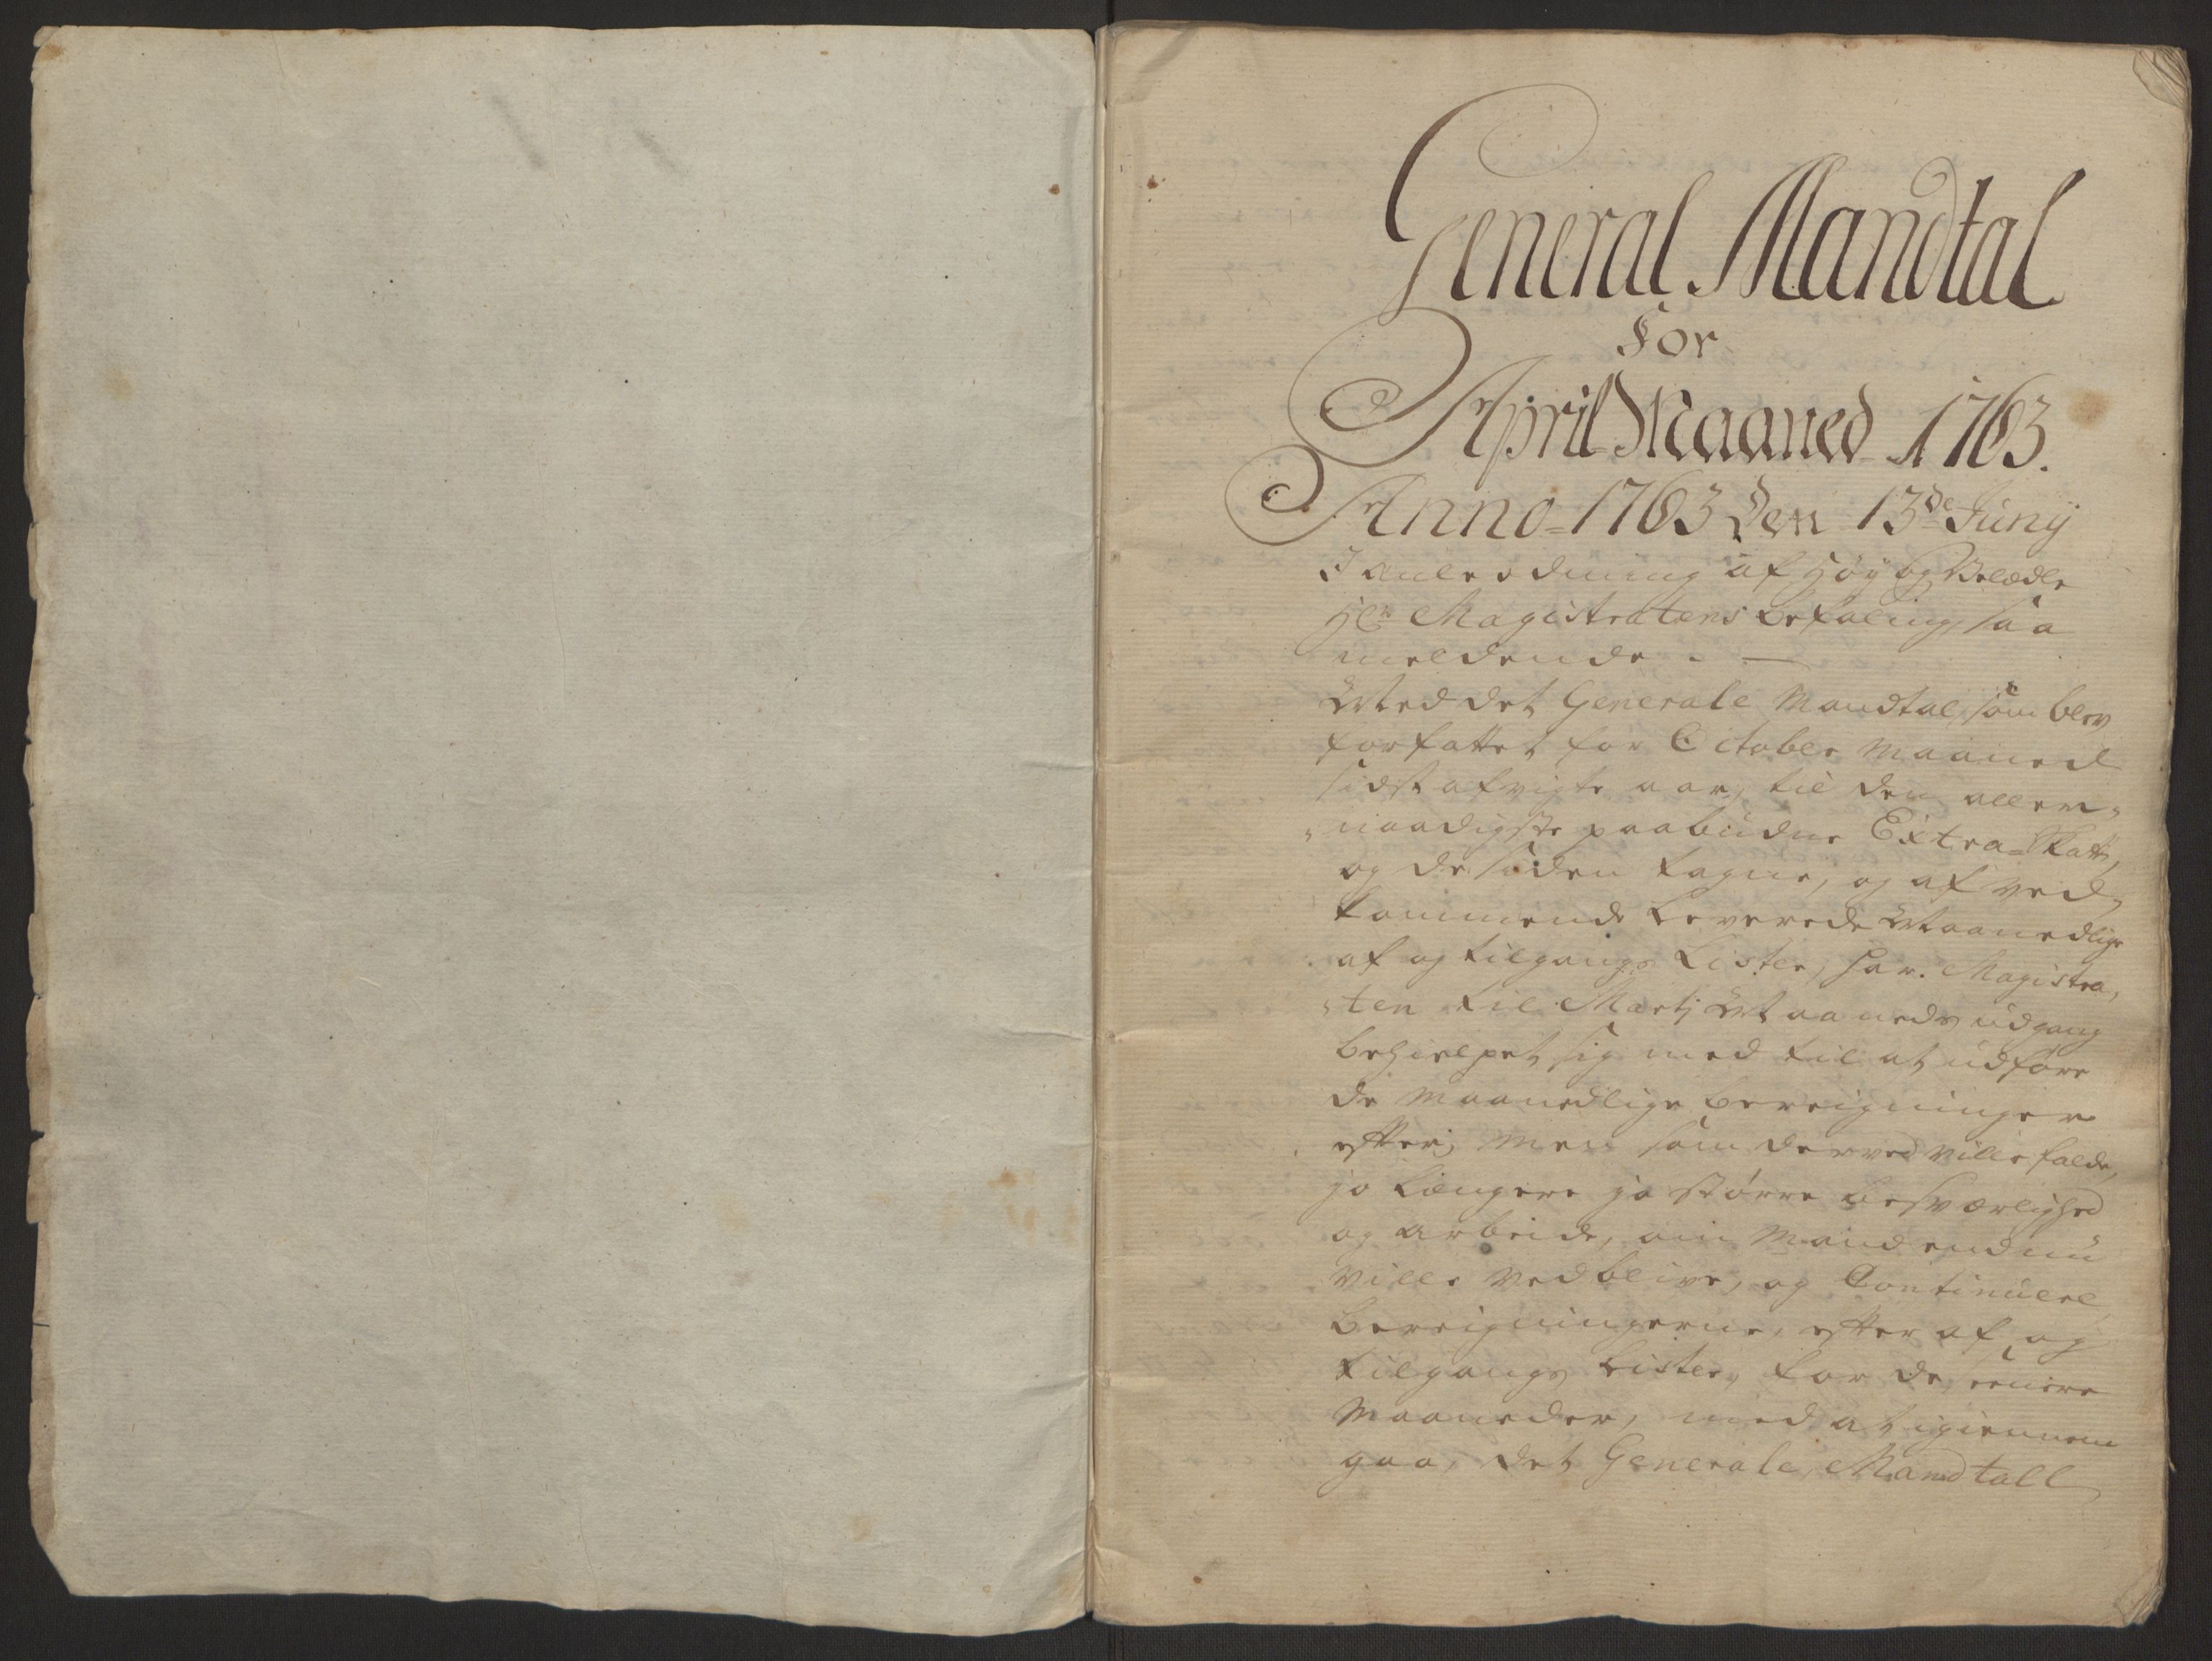 General Mandtal
For
April Maaned 1763.
Anno 1763 den 13de Juny
I anleedning af Høy og Velædle
Hr Magistratens befaling saa
meldende. —
Med det Generale Mandtal, som blev
forfattet for October Maaned
sidst afvigte aar, til den aller-
naadigste paabudne Extra-Skatt,
og de siden tagne, og af ved-
kommende leverede Maanedlige
af og tilgangs Lister, har Magistra-
ten til Marty Maaneds udgang
behielpet sig med til at udføre
de Maanedlige bereigninger
efter; men som derved ville falde,
jo længere jo større besværlighed
og arbeide, om Mand endnu
ville vedblive, og Continuere
bereigningerne, efter af og
tilgangs Lister, for de
Maaneder, med at igiennem
gaa, det Generale Mandtall